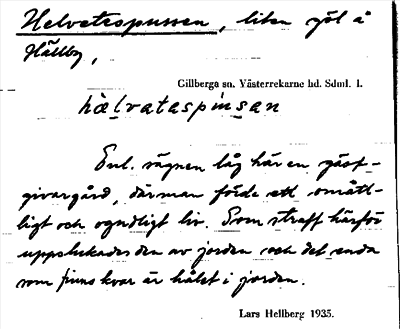 Helvetespussen, liten göl å
Hällby,
Gillberga sn. Västerrekarne hd. Sdml. 1.
hælvataspinsan
Enl. sägnen låg här en gäst-
givargård, där man förde ett omått-
ligt och ogudligt liv. Som straff härför
uppslukades den av jorden och det enda
som finns kvar är hålet i jorden.
Lars Hellberg 1935.